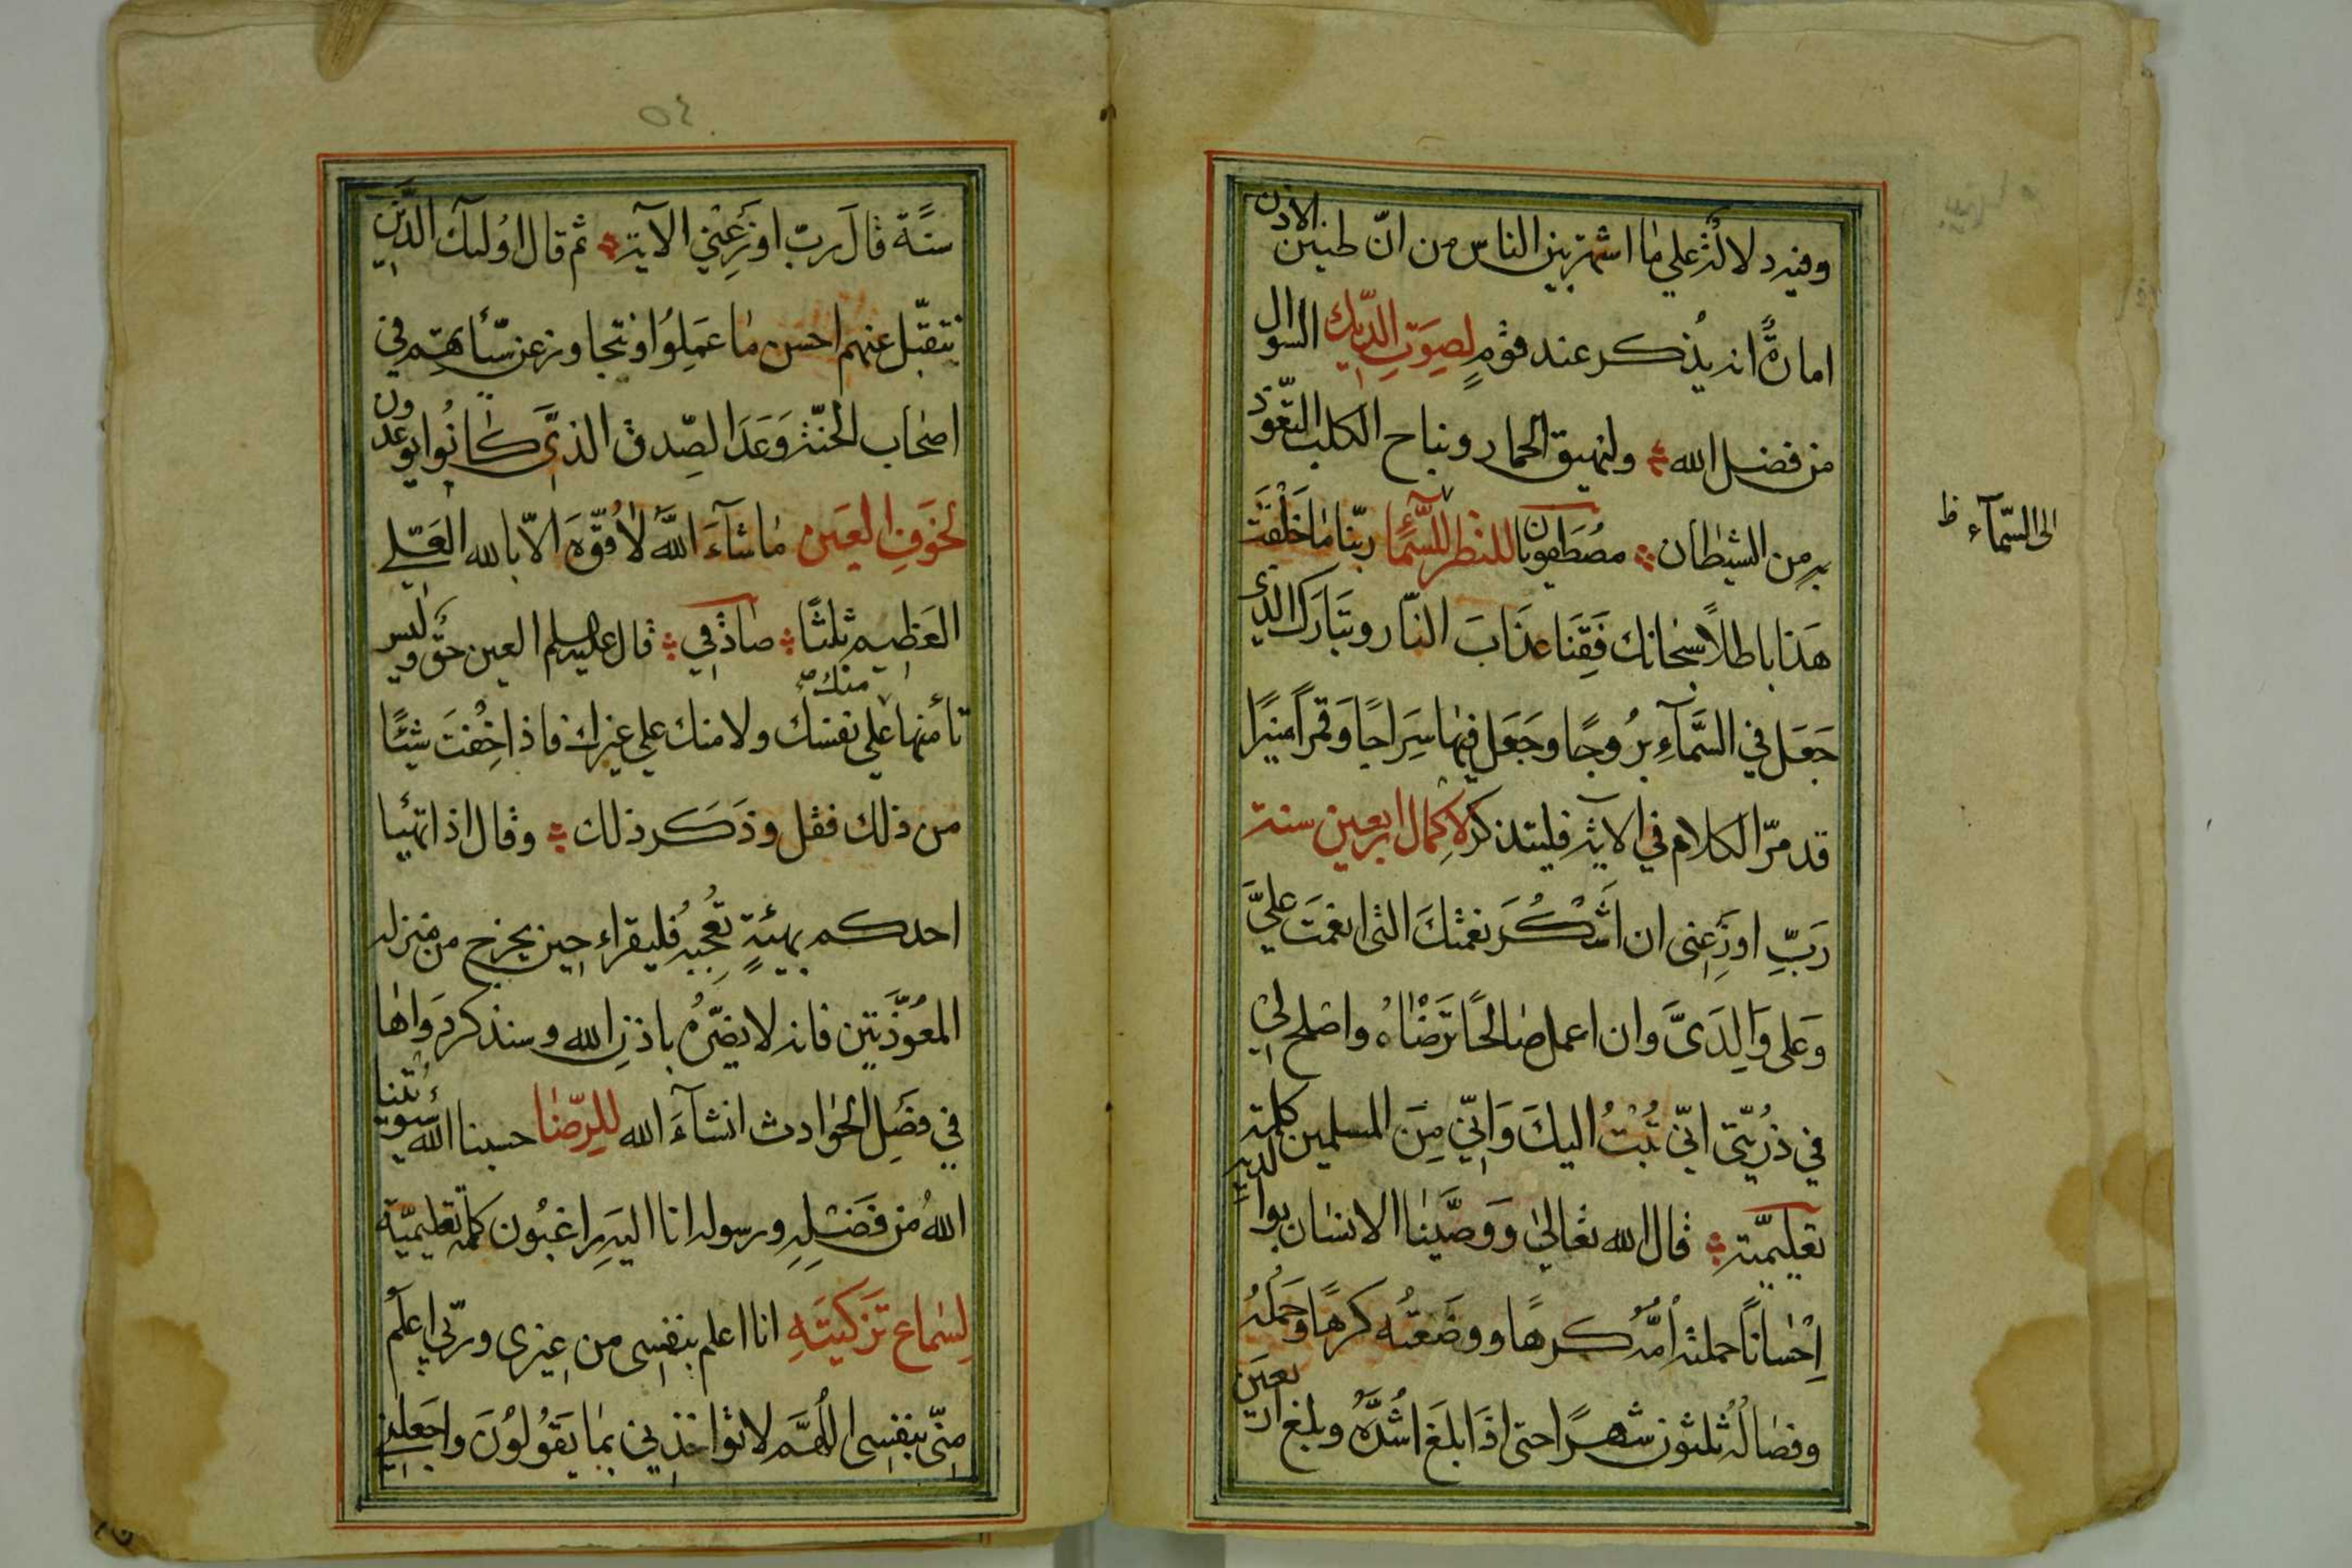 وفيه دلالة على ما اشتهر بين الناس من انّ طنين الاذن
امارةٌ انه يُذكر عند قومٍ لصَوتِ الدّيك السوال
من فضل الله ولنهيق الحمار ونباح الكلب التعّوذ
به من الشيطان مصطفويان للنظر للسّمآء ربّنا ما خلَقْتَ
الى السّمآء ظ
هَذا باطلاً سبحانك فَقِنَا عذَابَ النّار وتبَارَك الذي
جَعَل في السَّمآءِ برُوجًا وجَعَل فيها سِرَاجًا وَقمرًا منيرًا
قد مرّ الكلام في الآية فليتذكر لاكمال اربعين سنة
رَبِّ اوزِعني ان اشْكُرَ نعمتكَ التى انعمتَ عليَّ
وَعلى وَالِدَىَّ وان اعمل صالحًا تَرضْاهُ واصلح لي
في ذُريّتي انّي تُبْتُ اليكَ وَانّي مِنَ المسلمين كلمة
تعليميّة قال الله تعالى وَوصَّينا الانسان بوالديه
اِحْسَانًا حملته اُمُّه كرهًا ووضَعَتْه كرهًا وحَملهُ
وفصالهُ ثلثون شهرًا حتى اذَا بلَغ اشُدَّهُ وبلغ اربعين
٥٤
سنةً قالَ ربّ اوزِعْني الآية ثم قال اوُلئك الذّين
نتقبّل عنهم احسن ما عَمِلوُا ونتجاوز عن سيّئاتهم في
اصحاب الجنّة وَعَدَ الصِّدق الذى كانُوا يوعدون
لخوَفِ العَين ما شآءَ اللهُ لا قوّةَ الاّ بالله العَليّ
العَظيم ثلثًا صادقي قال عليه السلم العين حَقٌّ وليس
تأمنها على نفسك منك صح ولا منك على غيرك فاذا خِفْتَ شيئًا
من ذلك فقل وذَكر ذلك وقال اذا تهيّأ
احدكم بهيئةٍ تُعجبه فليقراء حين يخرج من منزله
المعُوّذَتين فانه لا يضرّهُ باذن الله وسنذكر دواها
في فصَلِ الحوادث انشآءَ الله للرِّضا حسبنا الله سَيؤُتينا
اللهُ من فضَلِهِ ورسوله انا اليه راغبُون كلمة تعليميّة
لِسَماع تزكيَتِهِ انا اعلم بنفسى من غيرى وربّي اعلَم
مِنّى بنفسِى اللّهُمَّ لا تؤاخذني بما يَقوُلوُنَ واجعَلني